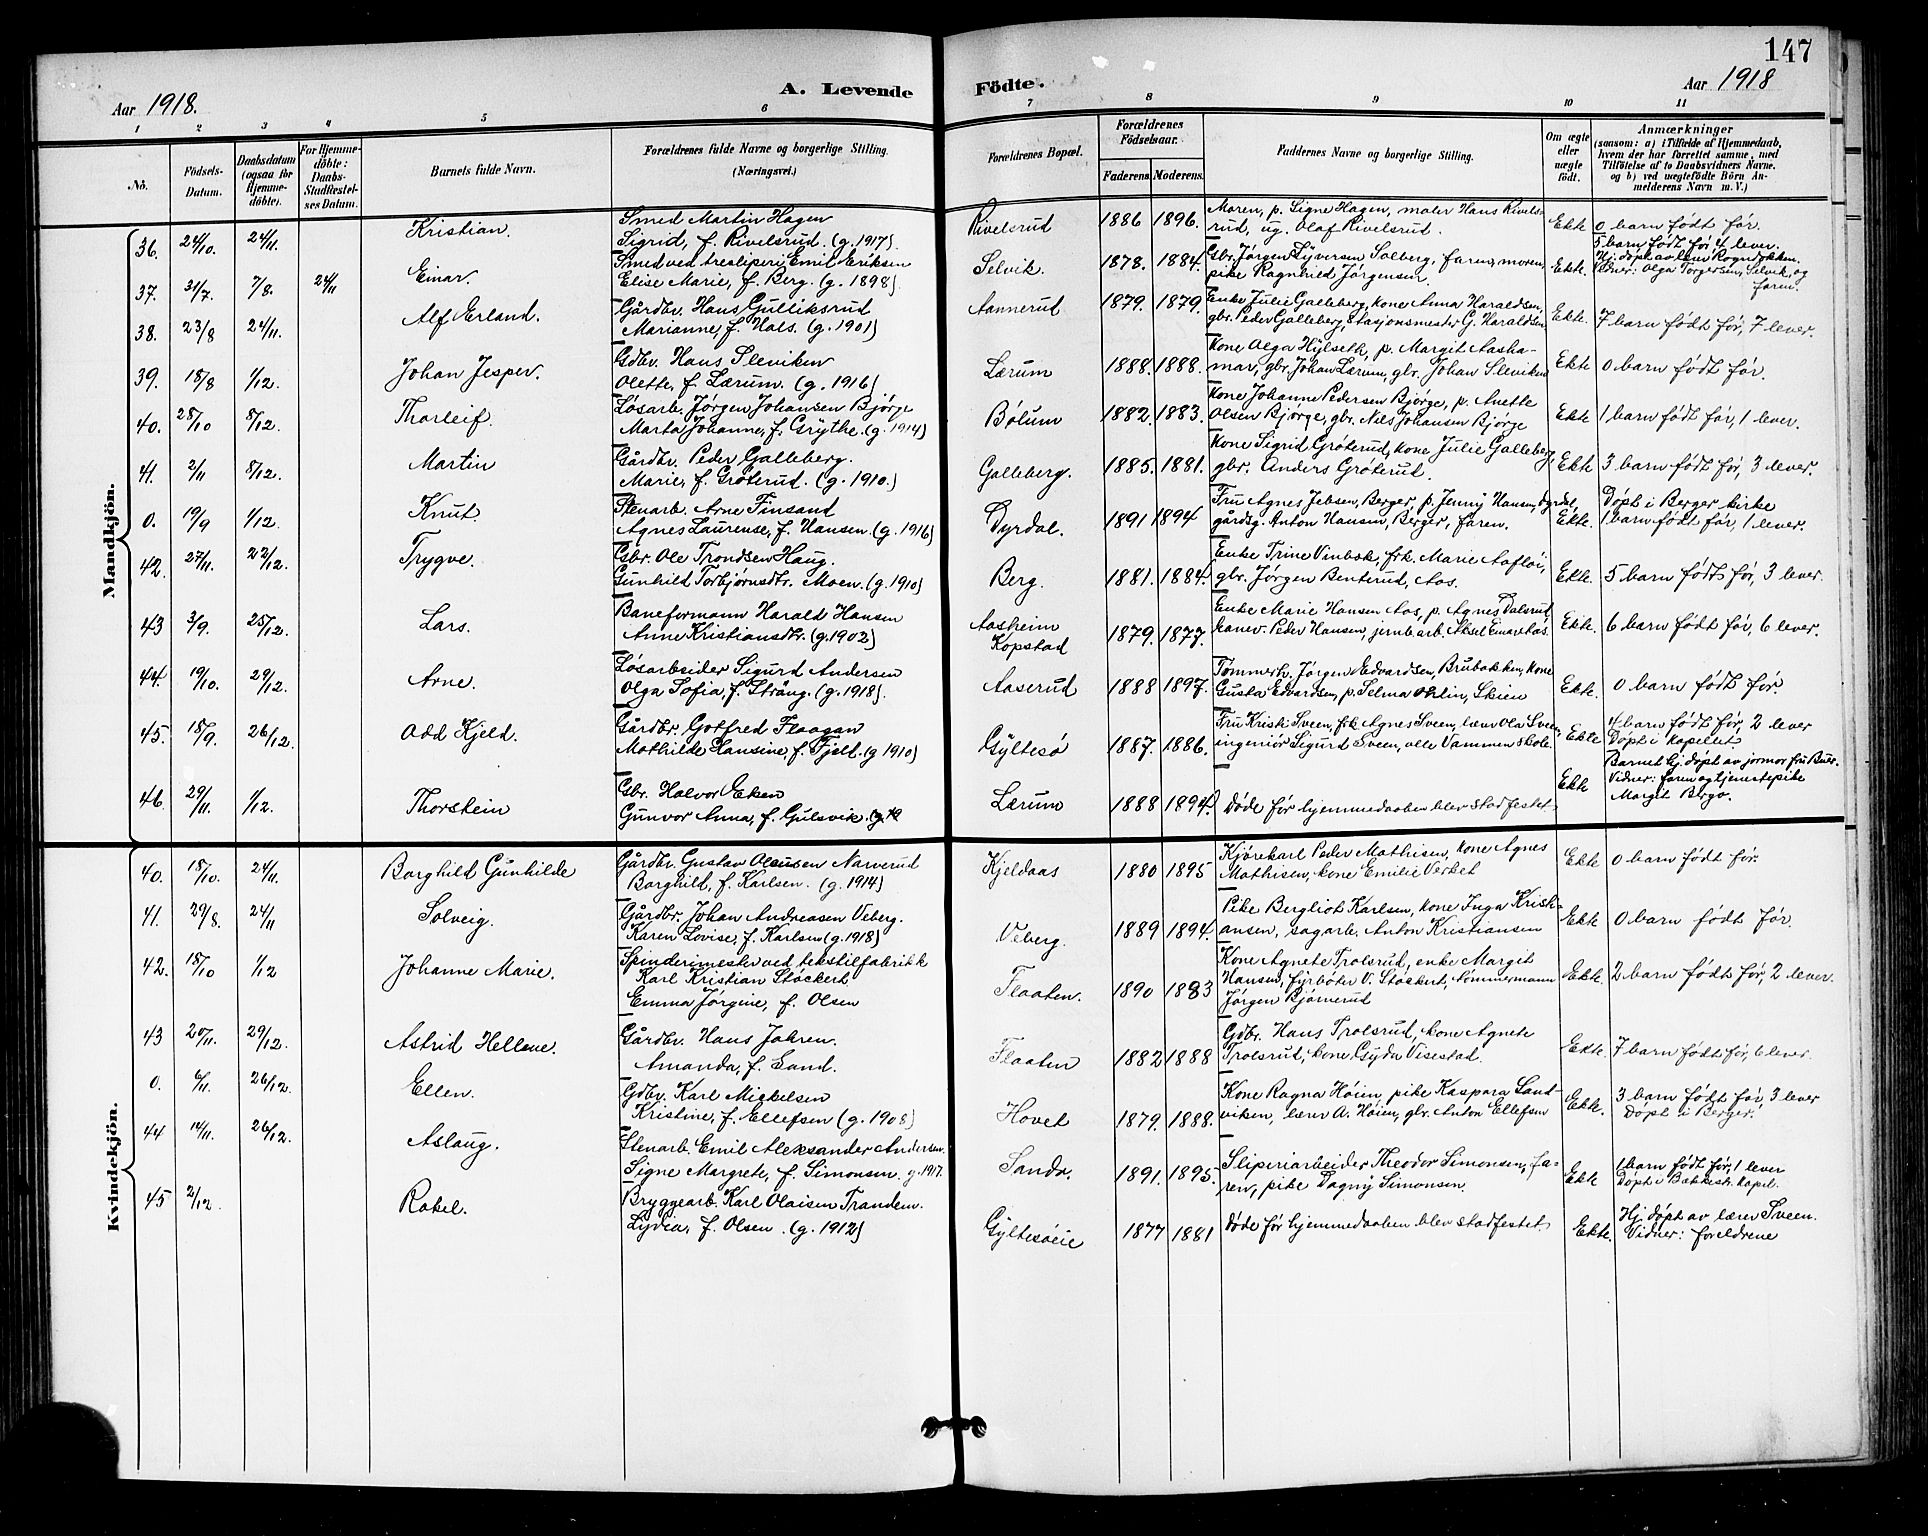 147
Aar 1918.
A. Levende
Födte.
Aar 1918
1 2 3 4 5 6 7 8 9 10 11
No.
Födsels-
Datum.
Daabsdatum
(ogsaa for
Hjemme-
döbte).
For Hjemme-
döbte:
Daabs-
Stadfæstel-
ses Datum.
Barnets fulde Navn.
Forældrenes fulde Navne og borgerlige Stilling.
(Næringsvei.)
Forældrenes Bopæl.
Forældrenes
Födselsaar.
Faderens. Moderens.
Faddernes Navne og borgerlige Stilling.
Om ægte
eller
uægte
født.
Anmærkninger
(saasom: a) i Tilfælde af Hjemmedaab,
hvem der har forrettet samme, med
Tilføielse af to Daabsvidners Navne,
og b) ved uægtefødte Börn An-
melderens Navn m. V.)
Mandkjön.
36. 24/10. 24/11. Kristian. Smed Martin Hagen
Sigrid, f. Rivelsrud. (g. 1917).
Rivelsrud 1886 1896. Moren, p. Signe Hagen, maler Hans Rivels-
rud, ug. Olaf Rivelsrud.
Ekte 0 barn født før.
37. 31/7. 7/8. 24/11 Einar. Smed ved tresliperi Emil Eriksen
Elise Marie, f. Berg. (g. 1898).
Selvik. 1878. 1884. Gbr. Jørgen Syversen Solberg, faren, moren,
pike Ragnhild Jørgensen.
Ekte. 5 barn født før, 4 lever.
Hj. døpt av lærer Rogndokken.
Vidner: Olga Torgersen, Selvik, og
faren.
38. 23/8 24/11. Alf Erland. Gårdbr. Hans Gulliksrud
Marianne, f. Hals. (g. 1901)
Aannerud 1879. 1879. Enke Julie Galleberg, kone Anna Haraldsen,
gbr. Peder Galleberg, Stasjonsmester G. Haraldsen
Ekte. 7 barn født før, 7 lever.
39. 18/8 1/12. Johan Jesper. Gdbr. Hans Sleviken
Olette, f. Lærum. (g. 1916)
Lærum 1888. 1888. Kone Olga Hylseth, p. Margit Aasha-
mar, gbr. Johan Lærum, gbr. Johan Sleviken
Ekte 0 barn født før.
40. 28/10 8/12. Thorleif. Løsarb. Jørgen Johansen Bjørge
Marta Johanne, f. Grythe. (g. 1914)
Bølum 1882. 1883. Kone Johanne Pedersen Bjørge, p. Anette
Olsen Bjørge, gbr. Nils Johansen Bjørge
Ekte 1 barn født før, 1 lever.
41. 2/11 8/12. Martin Gårdbr. Peder Galleberg.
Marie, f. Grøterud. (g. 1910.)
Galleberg. 1885. 1881. Kone Sigrid Grøterud, kone Julie Galleberg,
gbr. Anders Grøterud.
Ekte 3 barn født før, 3 lever.
0. 19/9 1/12. Knut. Stenarb. Arne Finsand
Agnes Laurense, f. Hansen (g. 1916)
Dyrdal. 1891 1894 Fru Agnes Jebsen, Berger, p. Jenny Hansen, Dyrdal,
gårdsg. Anton Hansen, Berger, faren.
Ekte. Døpt i Berger kirke
1 barn født før, 1 lever.
42. 27/11. 22/12. Trygve. Gbr. Ole Trondsen Haug.
Gunhild Torbjørnsdtr. Moen. (g. 1910)
Berg. 1881. 1884. Enke Trine Vinbok, frk. Marie Aafløi,
gbr. Jørgen Benterud, Aas.
Ekte. 5 barn født før, 3 lever.
43 3/9. 25/12. Lars. Baneformann Harald Hansen
Anne Kristiansdtr. (g. 1902)
Aasheim
Kopstad 1879. 1877. Enke Marie Hansen Aas, p. Agnes Dalsrud,
banev. Peder Hansen, jernb.arb. Aksel Einar Aas.
Ekte. 6 barn født før, 6 lever.
44. 19/10. 29/12. Arne. Løsarbeider Sigurd Andersen
Olga Sofia, f. Strång. (g. 1918).
Aaserud 1888 1897. Tømmerh. Jørgen Edvardsen, Brubakken, kone
Gusta Edvardsen, p. Selma Ohlin, Skien
Ekte. 0 barn født før.
45. 18/9. 26/12. Odd Kjeld. Gårdbr. Gotfred Flaagan
Mathilde Hansine, f. Fjeld. (g 1910)
Gyltesø 1887. 1886. Fru Kristi Sveen, frk. Agnes Sveen, lærer Ola Sveen,
ingeniør Sigurd Sveen, alle Vammen skole.
Ekte 4 barn født før, 2 lever
Døpt i kapellet
46. 29/11. 1/12. Thorstein Gbr. Halvor Eken
Gunvor Anna, f. Gulsvik.
Lærum 1888 1894. Døde før hjemmedaaben blev stadfestet.
Ekte Barnet hj. døpt av jormor fru Buer.
Vidner: faren og tjenestepike
Margit Bergo.
Kvindekjön.
40. 18/10. 24/11. Borghild Gunhilde Gårdbr. Gustav Olausen Narverud
Borghild, f. Karlsen. (g. 1914)
Kjeldaas 1880 1895 Kjørekarl Peder Mathisen, kone Agnes
Mathisen, kone Emilie Verket
Ekte 0 barn født før.
41. 29/8. 24/11 Solveig. Gårdbr. Johan Andreasen Veberg.
Karen Lovise, f. Karlsen (g. 1918)
Veberg. 1889 1894. Pike Bergliot Karlsen, kone Inga Kristi-
ansen, sagarb. Anton Kristiansen
Ekte 0 barn født før.
42. 18/10 1/12 Johanne Marie. Spinderimester ved tekstilfabrikk
Karl Kristian Støckert
Emma Jørgine, f. Olsen
Flaaten. 1890 1883 Kone Agnete Trolsrud, enke Margit
Hansen, fyrbøter V. Støckert, tømmermann
Jørgen Bjørnerud
Ekte. 2 barn født før, 2 lever.
43 20/11. 29/12. Astrid Hellene. Gårdbr. Hans Jahren.
Amanda, f. Sand.
Flaaten 1882 1888 Gdbr. Hans Trolsrud, kone Agnete
Trolsrud, kone Gyda Visestad.
Ekte. 7 barn født før, 6 lever.
0. 6/11. 26/12. Ellen. Gdbr. Karl Mickelsen
Kristine, f. Ellefsen (g. 1908)
Hovet 1879. 1888. Kone Ragna Høien, pike Kaspara Sand-
viken, lærer A. Høien, gbr. Anton Ellefsen
Ekte. 3 barn født før, 3 lever
Døpt i Berger.
44 14/11. 26/12. Aslaug. Stenarb. Emil Alexsander Andersen.
Signe Margrete, f. Simonsen. g. 1917.
Sanda. 1891. 1895. Sliperiarbeider Theodor Simonsen, fa-
ren, pike Dagny Simonsen.
Ekte 1 barn født før, 1 lever
Døpt i Bakkestr. kapel.
45 2/12. Rakel. Bryggearb. Karl Olaisen Tranden.
Lydia, f. Olsen. (g. 1912)
Gyltesøeie 1877 1881 Døde før hjemmedaaben blev stadfestet.
Ekte. Hj. døpt av lærer Sveen.
Vidner: foreldrene